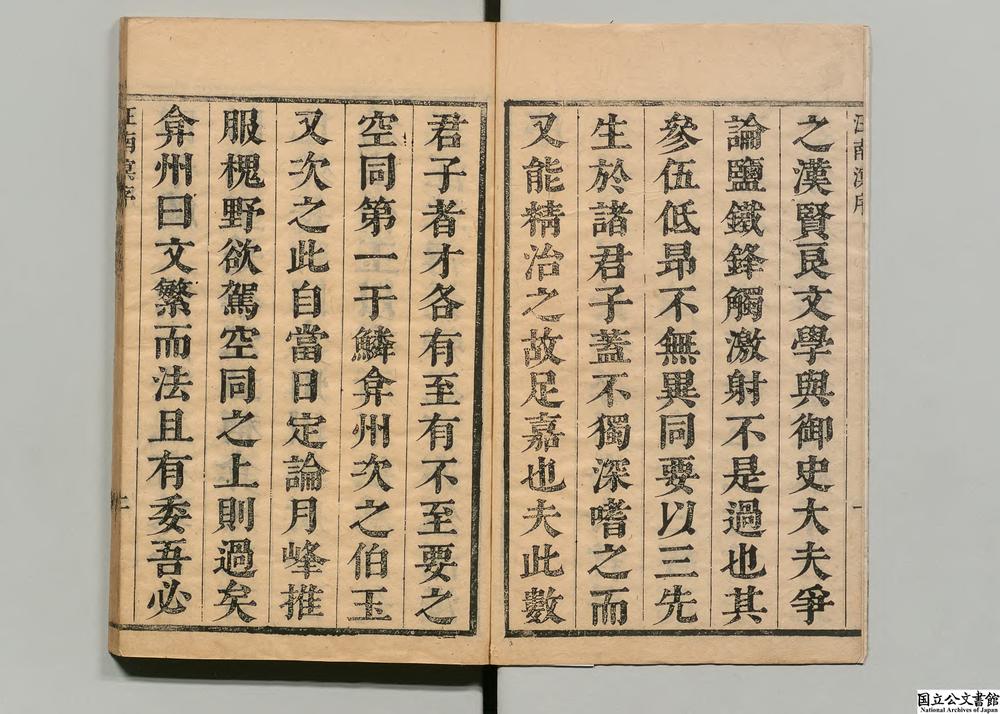 之漢賢良文學與御史大夫爭
論鹽鐵鋒觸激射不是過也其
參伍低昂不無異同要以三先
生於諸君子蓋不獨深嗜之而
又能精治之故足嘉也夫此數
君子者才各有至有不至要之
空同第一于鱗弇州次之伯玉
又次之此自當日定論月峰推
服槐野欲駕空同之上則過矣
弇州曰文繁而法且有委吾必
汪南溟序
一
汪南溟序
二
国立公文書館
National Archives of Japan